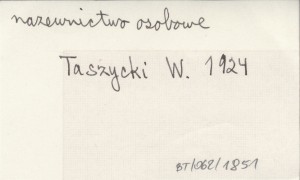 nazewnictwo osobowe
Taszycki W. 1924
BT/062/1851